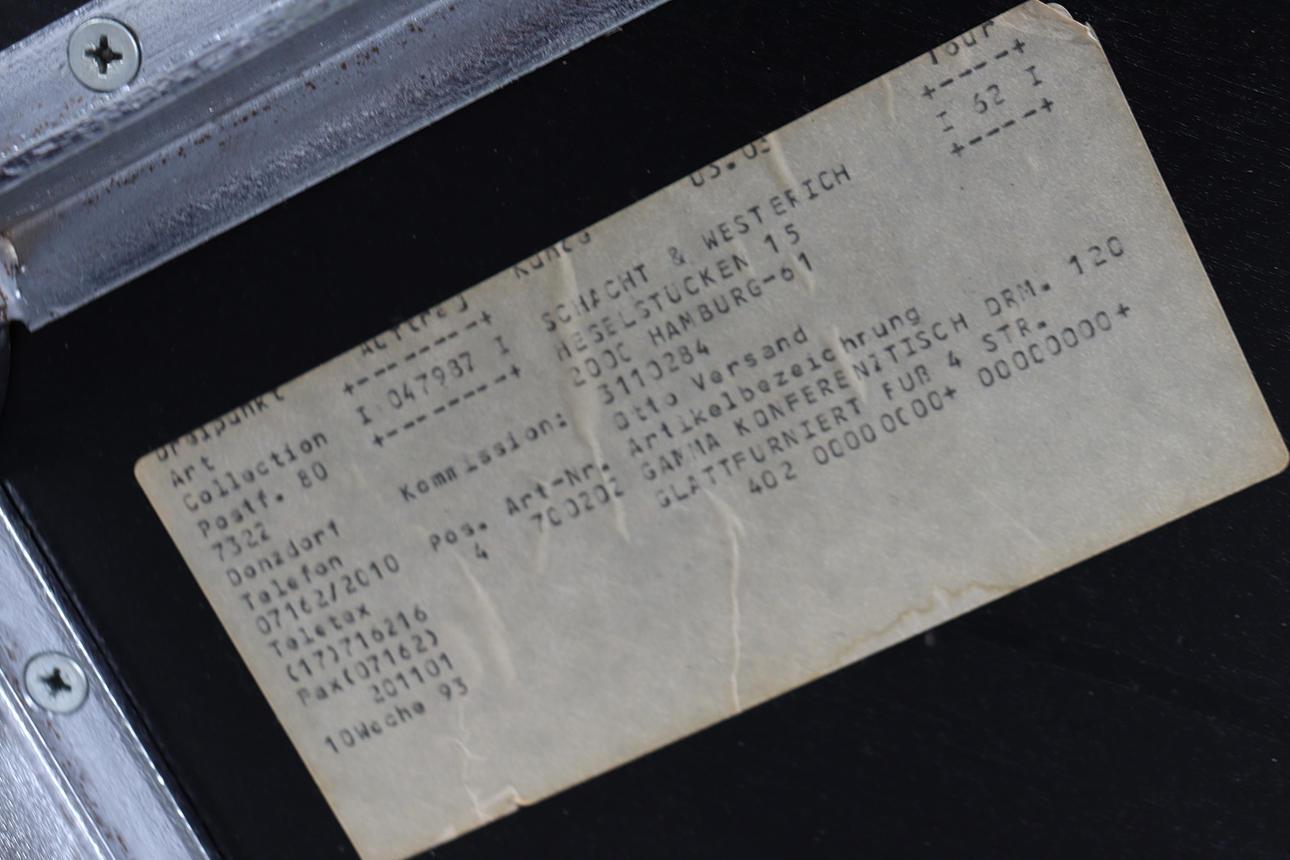 Auftrag Kunde 03.03 Tour
+------+ +-----+
I 047987 I SCHACHT & WESTERICH I 62 I
+------+ HESELSTÜCKEN 15 +-----+
2000 HAMBURG-61
Dreipunkt
Art
Collection
Postf. 80
7322
Donzdorf
Telefon
07162/2010
Teletex
(17)716216
Fax(07162)
201101
10Woche 93
Kommission: 3110284
Otto Versand
Pos. Art-Nr. Artikelbezeichnung
4 700202 GAMMA KONFERENZTISCH DRM. 120
GLATTFURNIERT FUR 4 STR.
402 00000000+ 00000000+